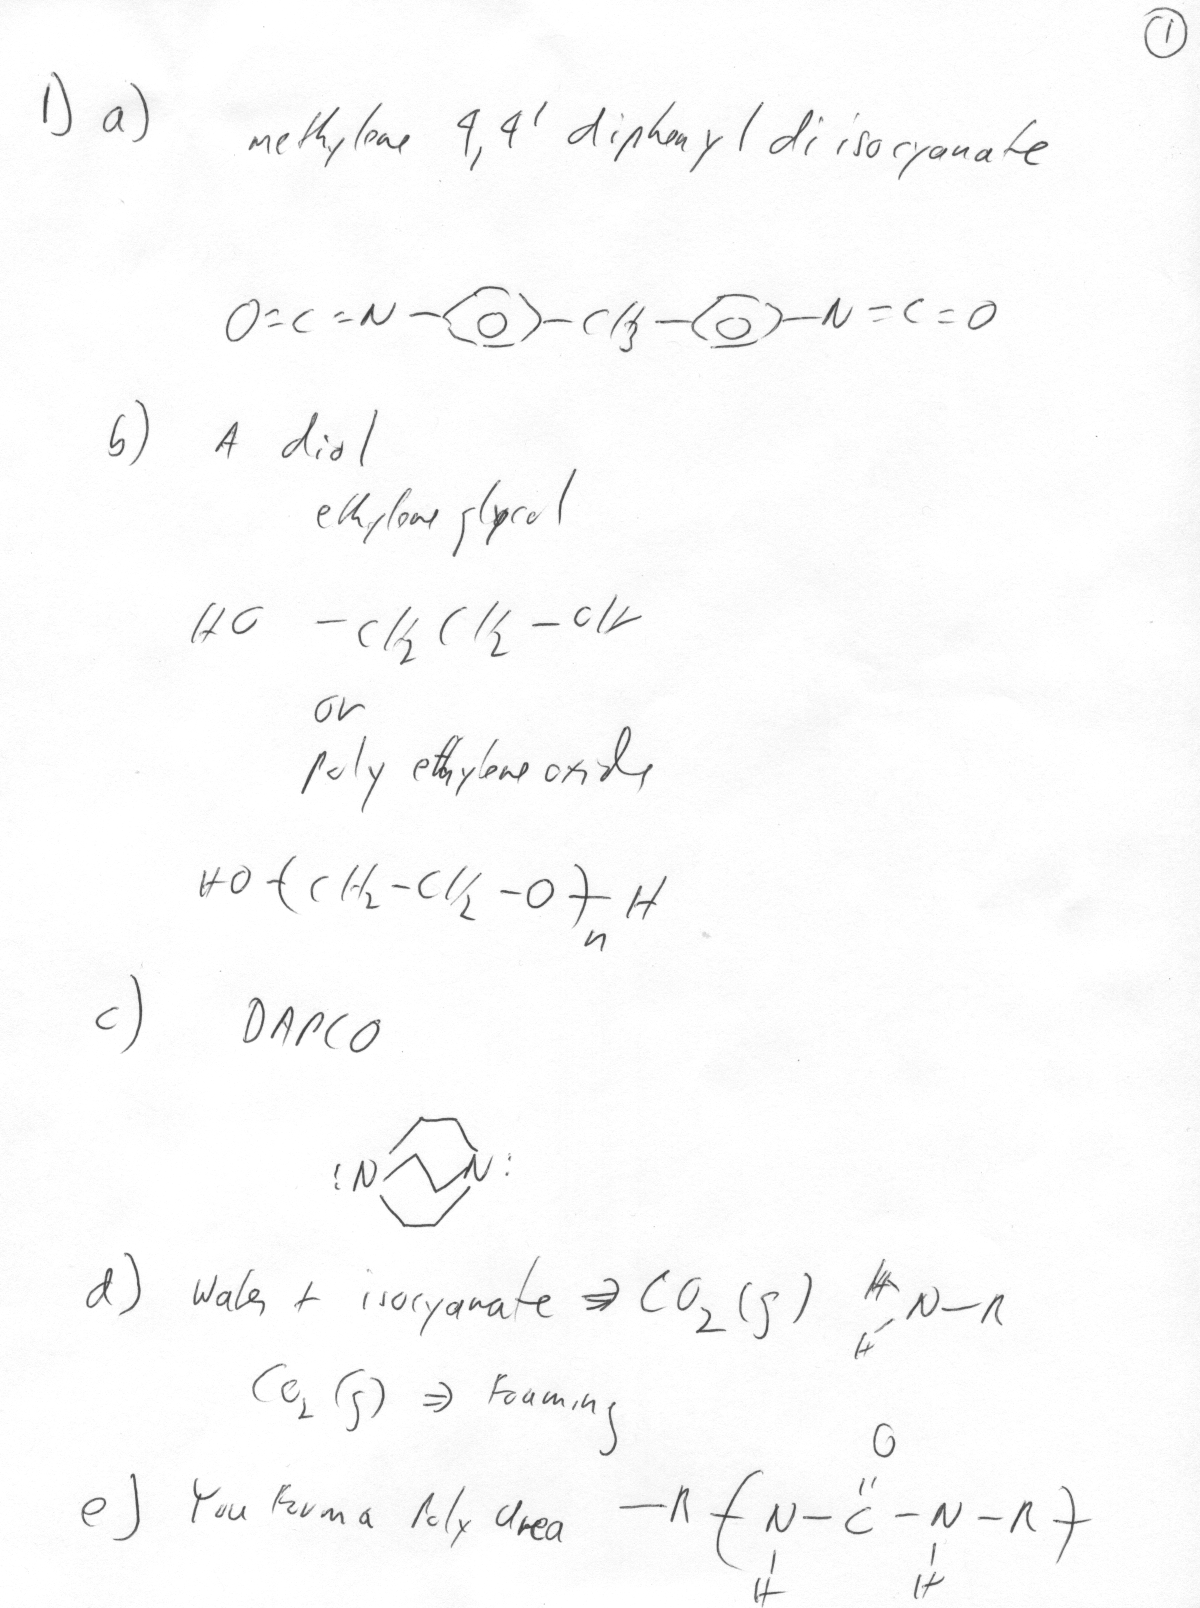 1
1) a) methylene 4,4' diphenyl diisocyanate
O=C=N- -CH2- -N=C=O
b) A diol
ethylene glycol
HO -CH2CH2-OH
or
Poly ethylene oxide
HO-(CH2-CH2-O)-H
n
c) DABCO
:N N:
d) Water + isocyanate ⇒ CO2(g) H N-R
H
CO2(g) ⇒ Foaming
O
e) You Form a Poly Urea -R-(N-C-N-R-)
H H